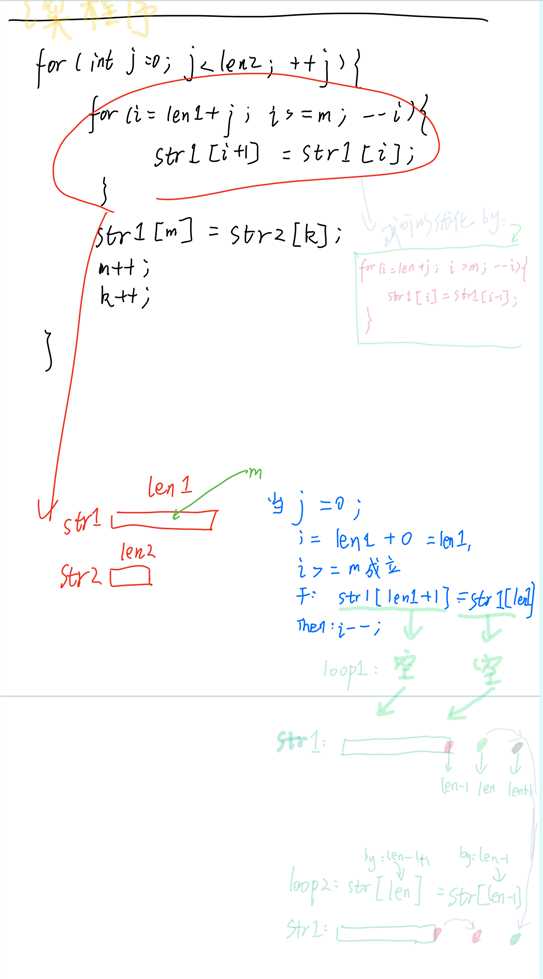 程序
for (int j=0; j<len2; ++j) {
for (i = len1 + j; i >= m; --i) {
str1 [i+1] = str1 [i];
}
str1 [m] = str2 [k];
m++;
k++;
}
by:
for(i=len+j; i>m; --i){
str1[i]=str1[i-1];
}
len1
m
str1
len2
str2
当 j=0;
i = len1 + 0 = len1,
i >= m 成立
于: str1[len1+1] = str1[len1]
Then: i--;
loop1: 空 空
str1:
len-1 len len+1
by:len-1+1 by:len-1
loop2: str[len] = str[len-1]
str1: